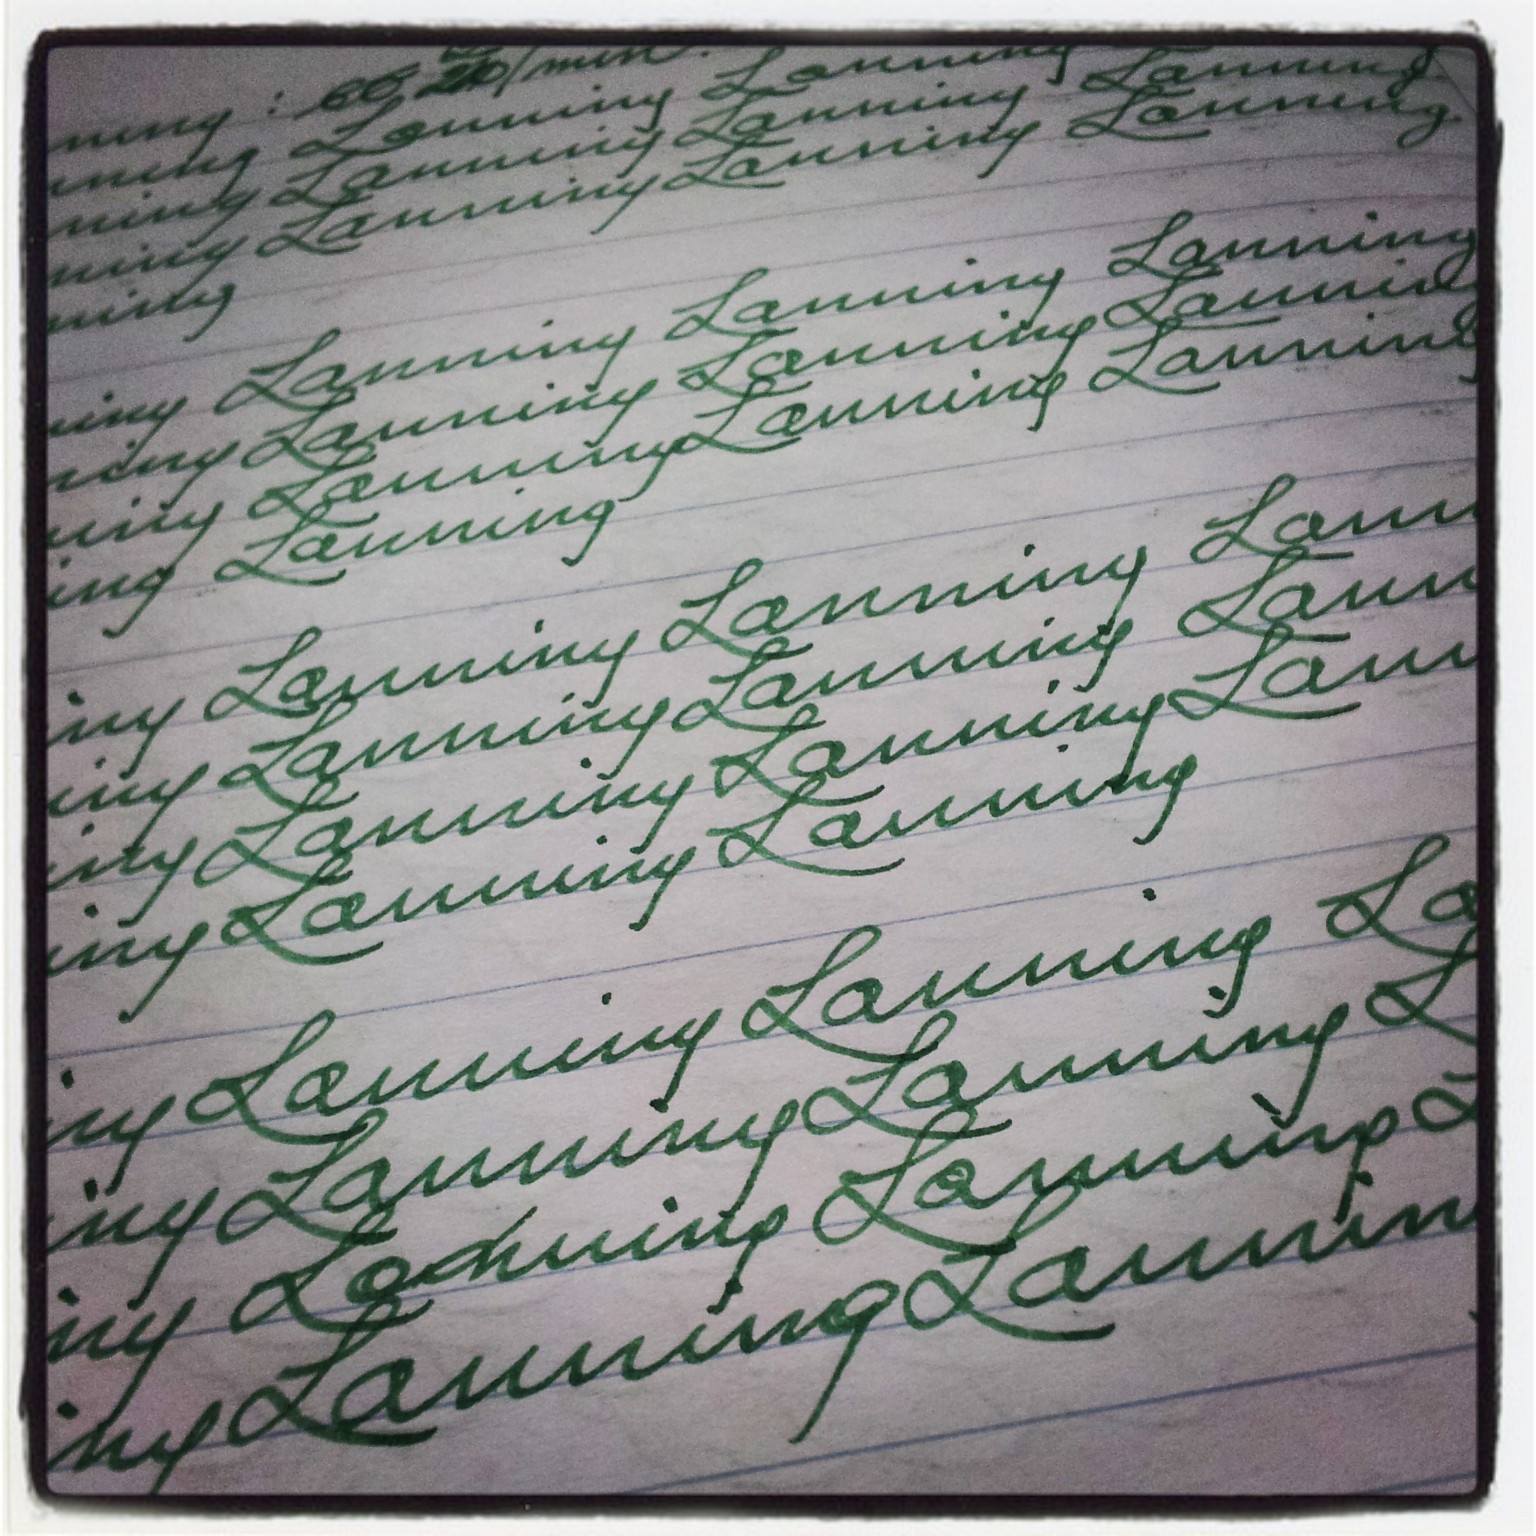 ning : 66 20/min.
nning Lanning Lanning
ning Lanning Lanning Lanning
ning Lanning Lanning Lanning.
ning
ning Lanning Lanning Lanning
ning Lanning Lanning Lanning
ning Lanning Lanning Lanning
ing Lanning
ing Lanning Lanning Lann
ing Lanning Lanning Lann
ing Lanning Lanning Lann
ing Lanning Lanning
ing Lanning Lanning La
ing Lanning Lanning L
ing Lanning Lanning L
ing Lanning Lannin